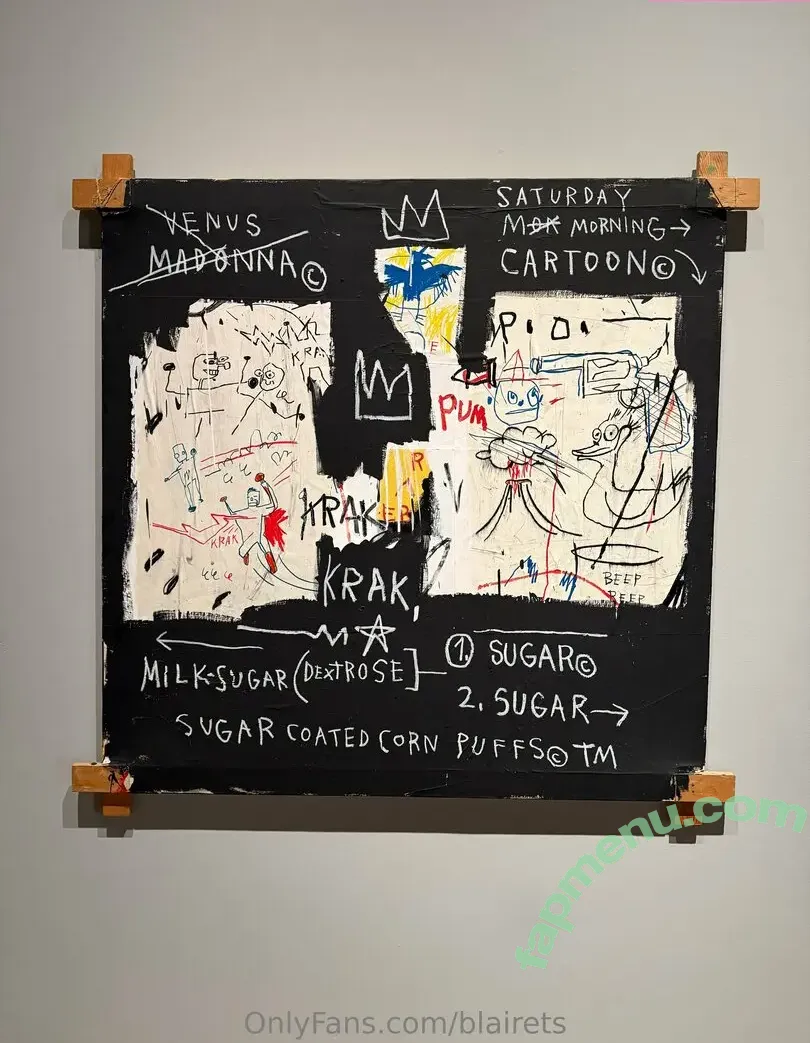 VENUS
MADONNA©
SATURDAY
MORNING→
CARTOON©
KRA
P.O.
E
PUM
R
KRAK
EB
KRAK
BEEP
BEEP
KRAK,
MILK-SUGAR (DEXTROSE]
1. SUGAR©
2. SUGAR→
SUGAR COATED CORN PUFFS© TM
fapmenu.com
OnlyFans.com/blairets